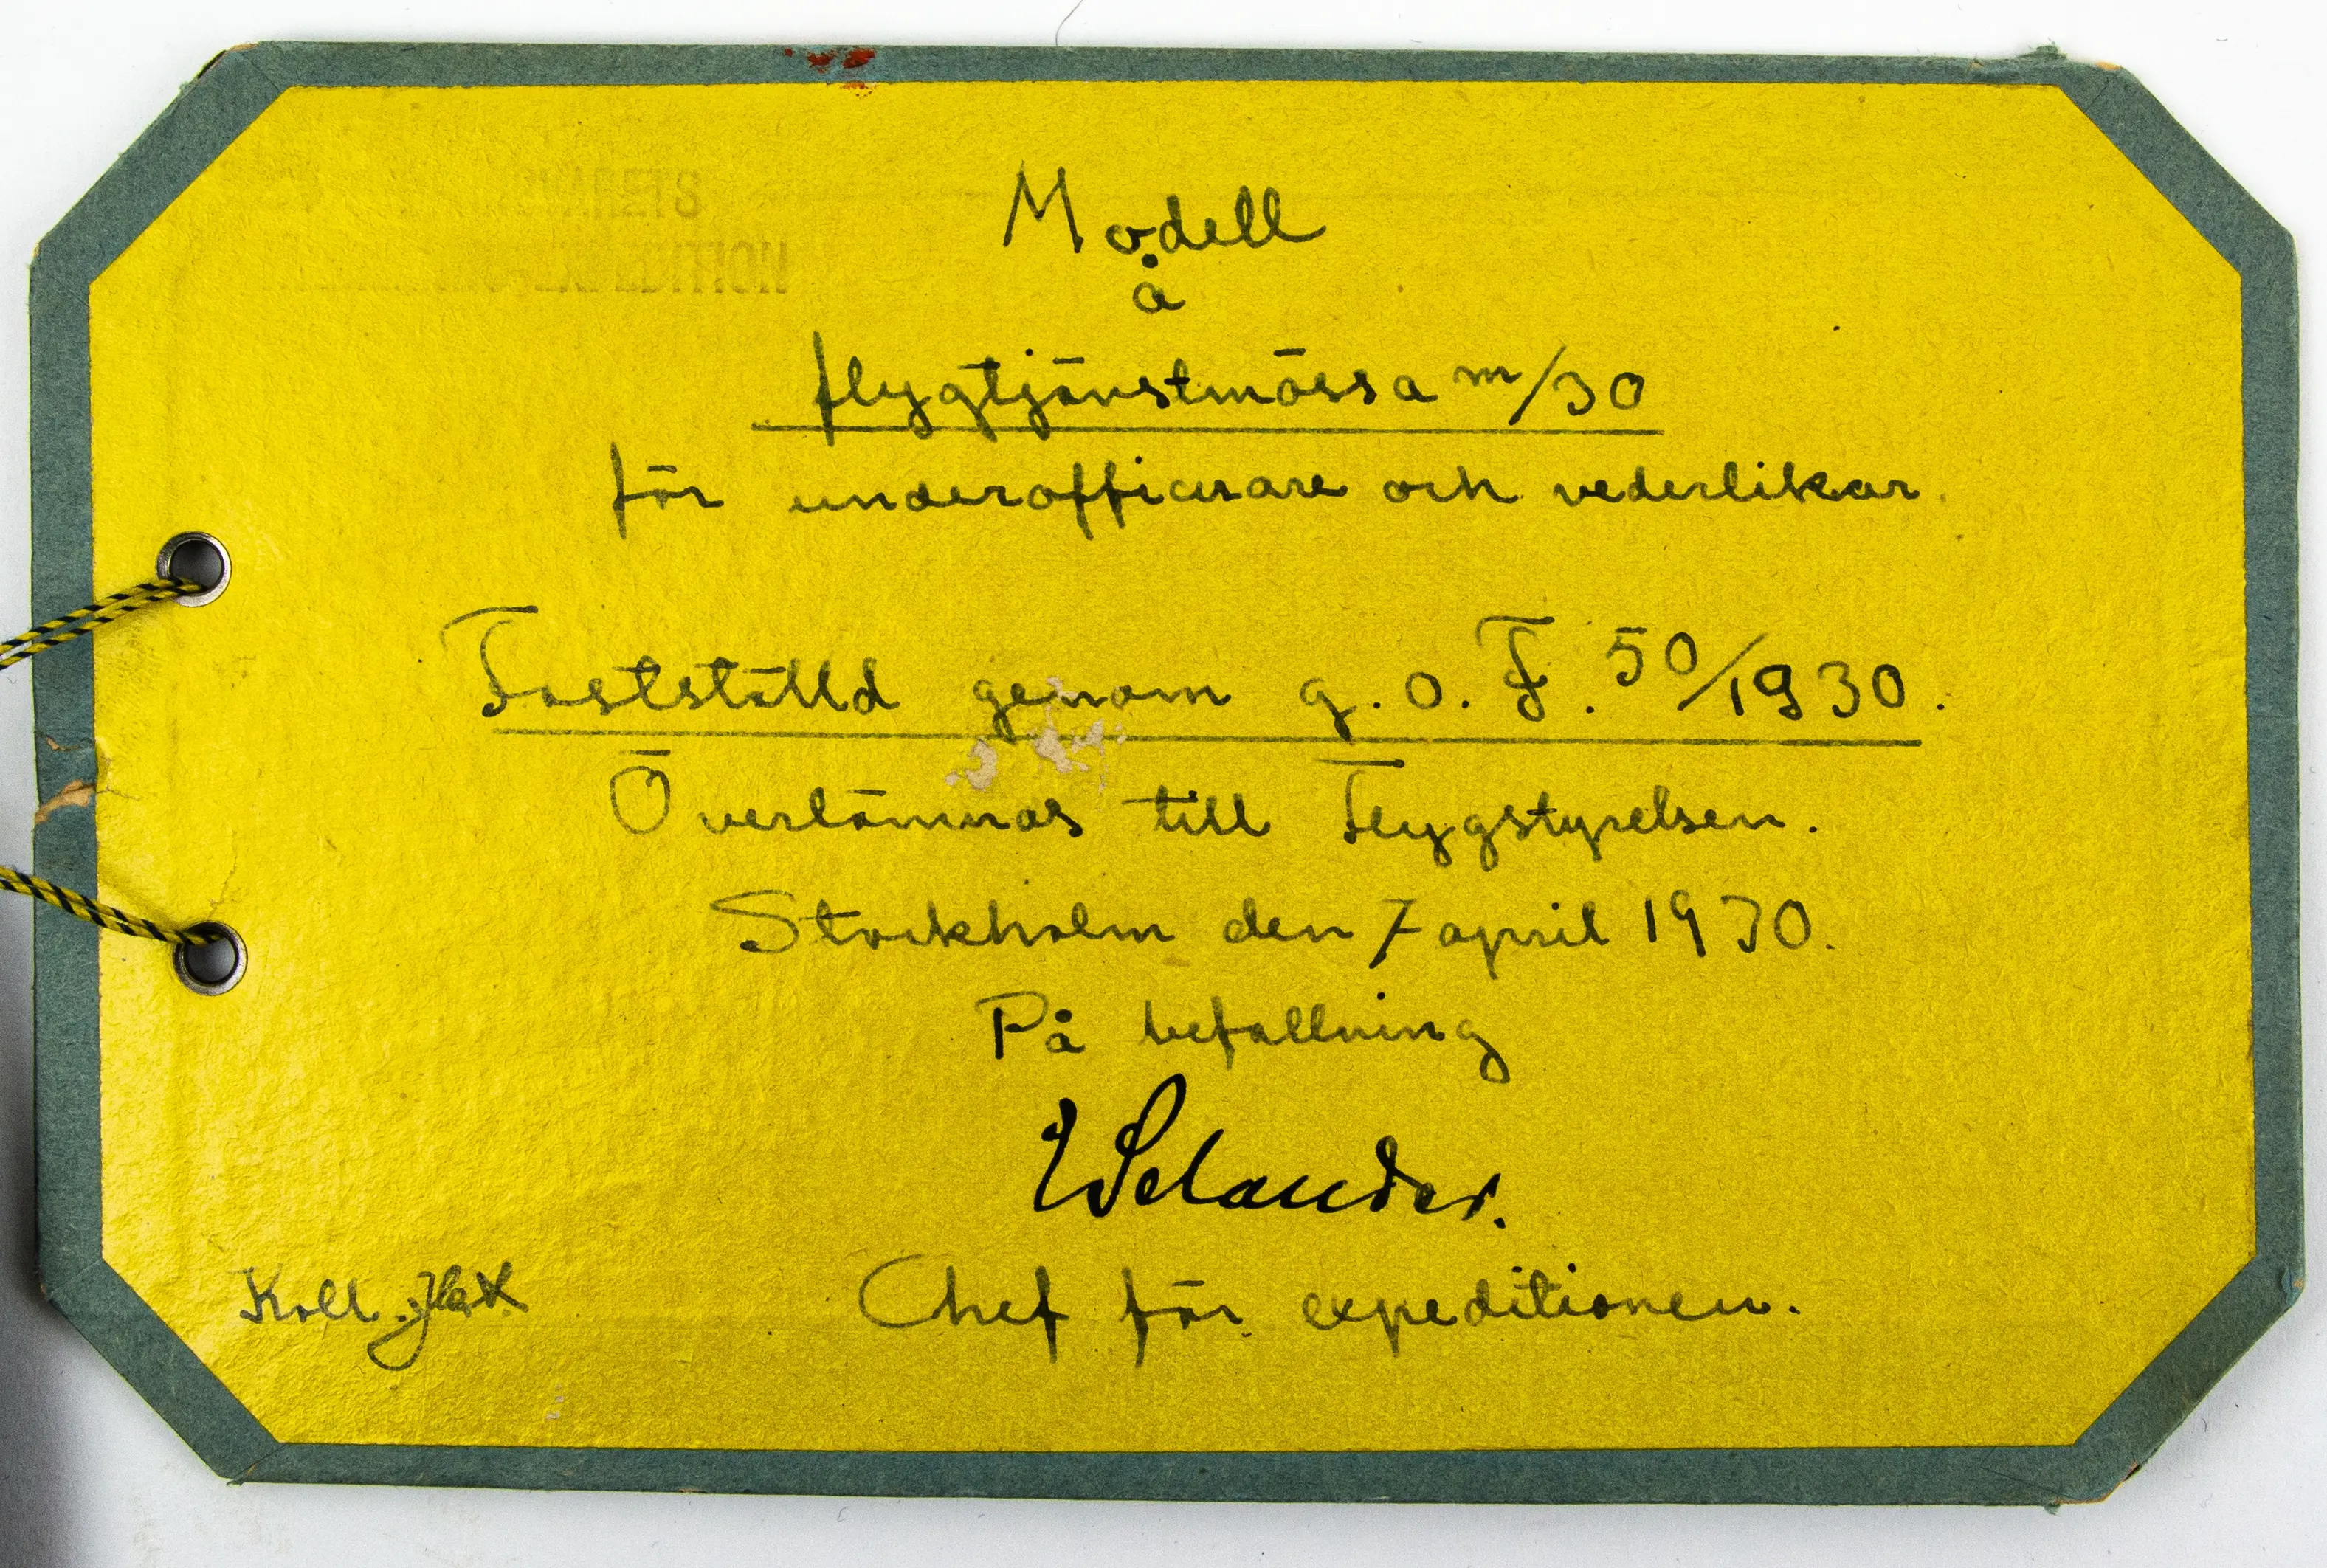 Modell
å
flygtjänstmössa m/30
för underofficerare och vederlikar.
Fastställd genom g. o. F. 50/1930.
Överlämnas till Flygstyrelsen.
Stockholm den 7 april 1930.
På befallning
Selander.
Chef för expeditionen.
Koll.